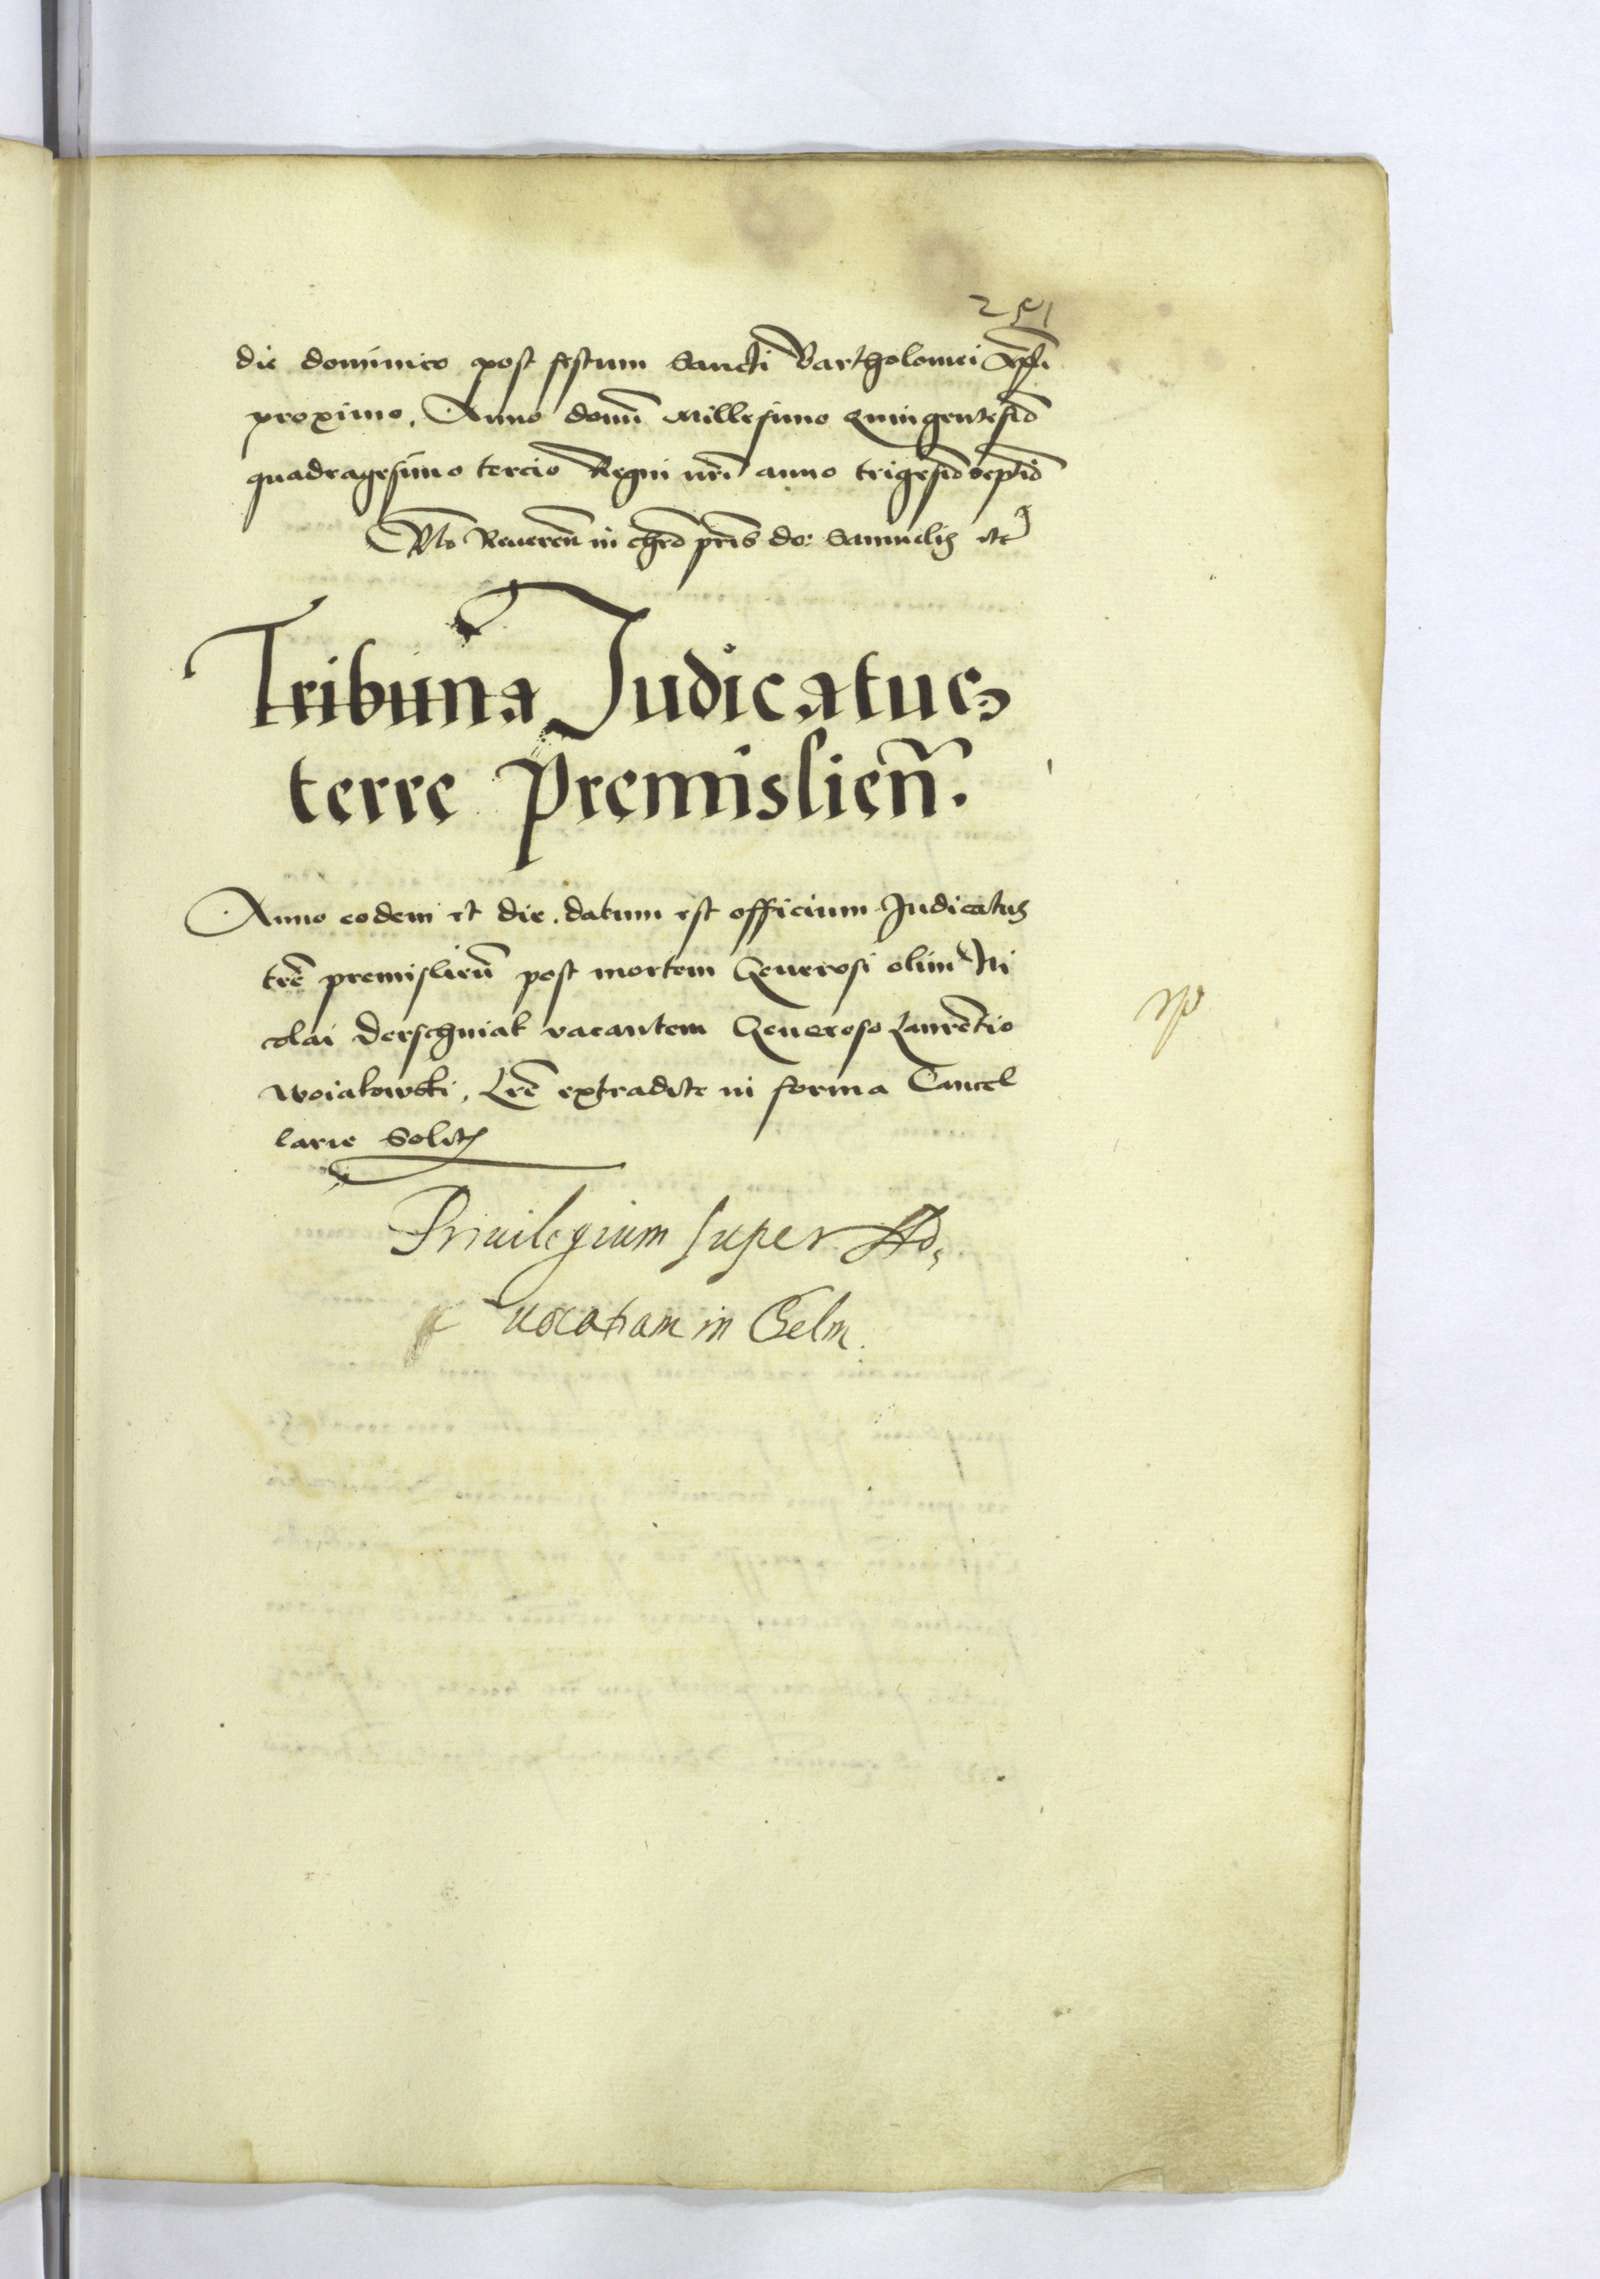 251
die dominico post festum Sancti Bartholomei Apli
proximo. Anno domi Millesimo Quingentesio
quadragesimo tercio Regni nri anno trigesio septio
Reueren in chro pris do: Samuelis etc
Tribuna Judicatus
terre Premislien.
Anno eodem et die datum est officium Judicatus
tre premislien post mortem Generosi olim Ni
colai Derschniak vacantem Generoso Laurentio
Woiakowski, Lre extradite in forma Cancel
larie Solite
Priuilegium super Ad,
uocatiam in Chelm.